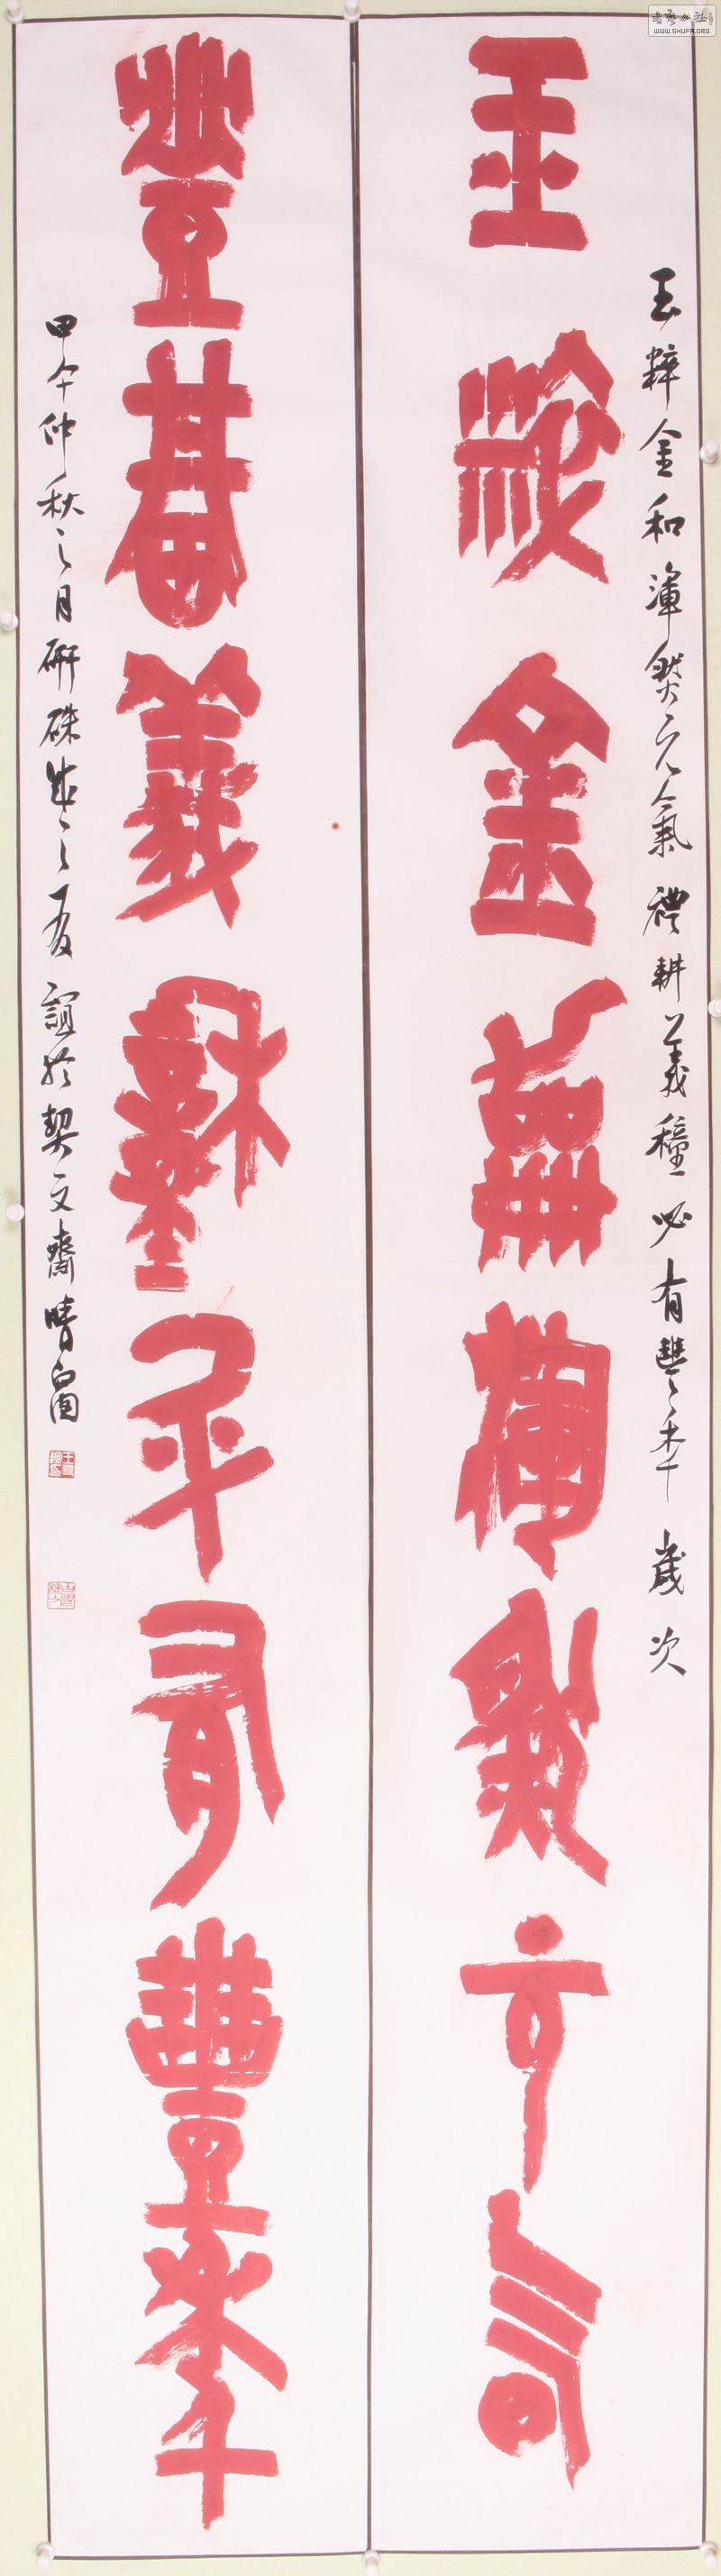 書藝公社
WWW.SHUFA.ORG
玉粹金和渾然元氣 禮耕義種必有豐年 歲次
玉粹金和渾然元氣
禮耕義種必有豐年
甲午仲秋之月研硃成之 誼於契文齋晴窗